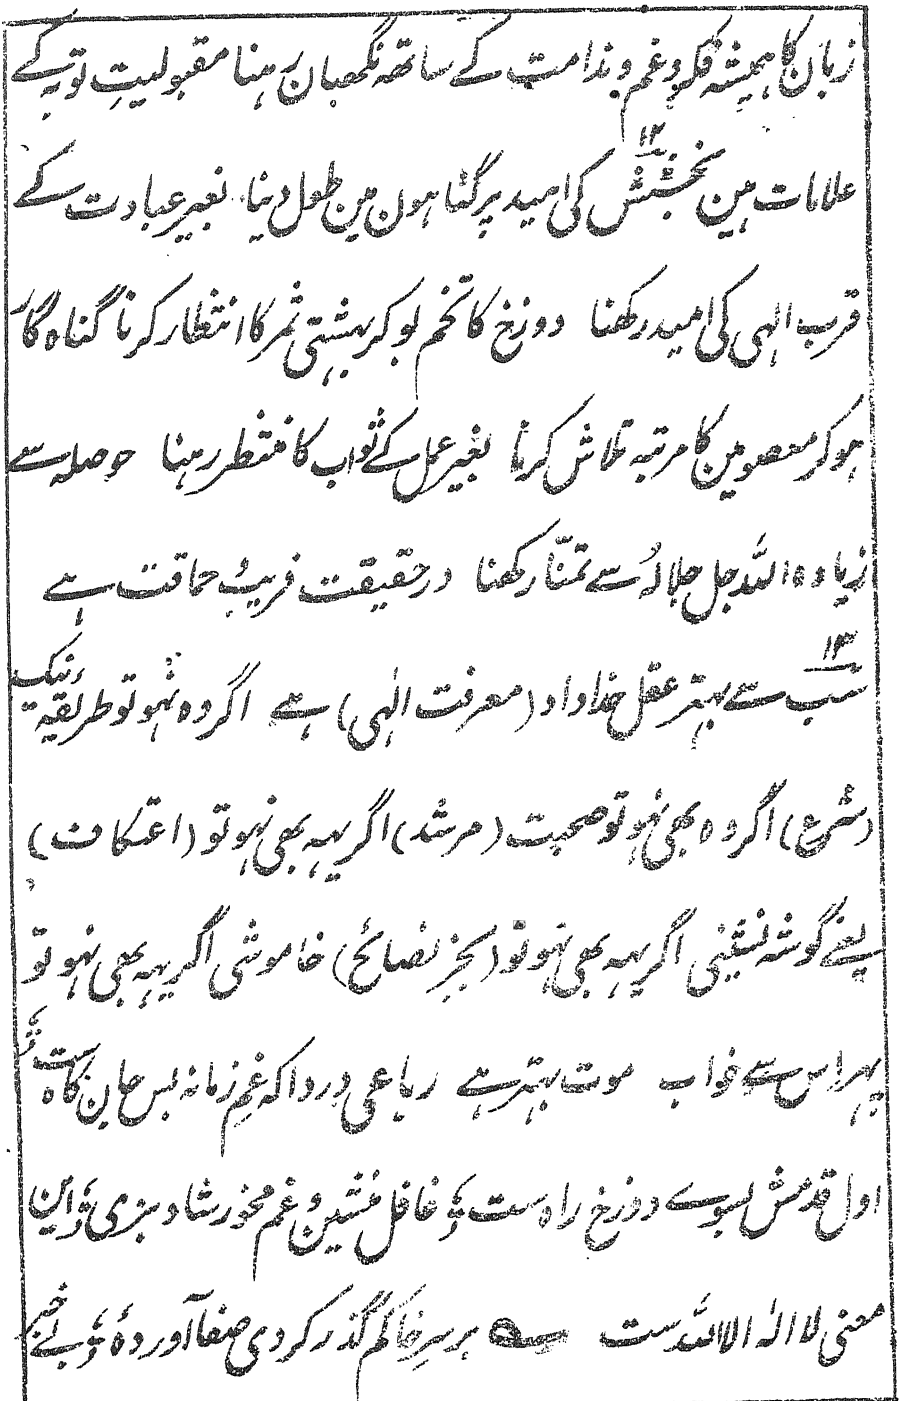 زبان کا ہمیشہ فکر و غم و ندامت کے ساتھ نگھبان رہنا مقبولیتِ توبہ کے
علامات ہین ۱۲ بخشش کی امید پر گناہون مین طول دینا۔ بغیر عبادت کے
قرب الہی کی امید رکھنا دوزخ کا تخم بو کر بہشتی ثمر کا انتظار کرنا گناہ گار
ہو کر معصومین کا مرتبہ تلاش کرنا بغیر عمل کے ثواب کا منتظر رہنا حوصلہ سے
زیادہ اللہ جل جلالہُ سے تمنّا رکھنا درحقیقت فریب و حماقت ہے
۱۳ سب سے بہتر عقل خداداد (معرفت الٰہی) ہے اگر وہ نہو تو طریقہ نیک
(شرع) اگر وہ بھی نہو تو صحبت (مرشد) اگر یہہ بھی نہو تو (اعتکاف)
یعنے گوشہ نشینی اگر یہہ بھی نہو تو (بجز نصائح) خاموشی اگر یہہ بھی نہو تو
پہر اس سے خواب موت بہتر ہے رباعی دردا کہ غمِ زمانہ بس جان کاہ ست
اول قدمش بسوے دوزخ راہ ست ؛ غافل منشین و غم مخور شاد بزی ؛ این
معنی لا الہ الا اللہ ست بر سرِ خاکم گذر کردی صفا آوردۂ ؛ بے خبر